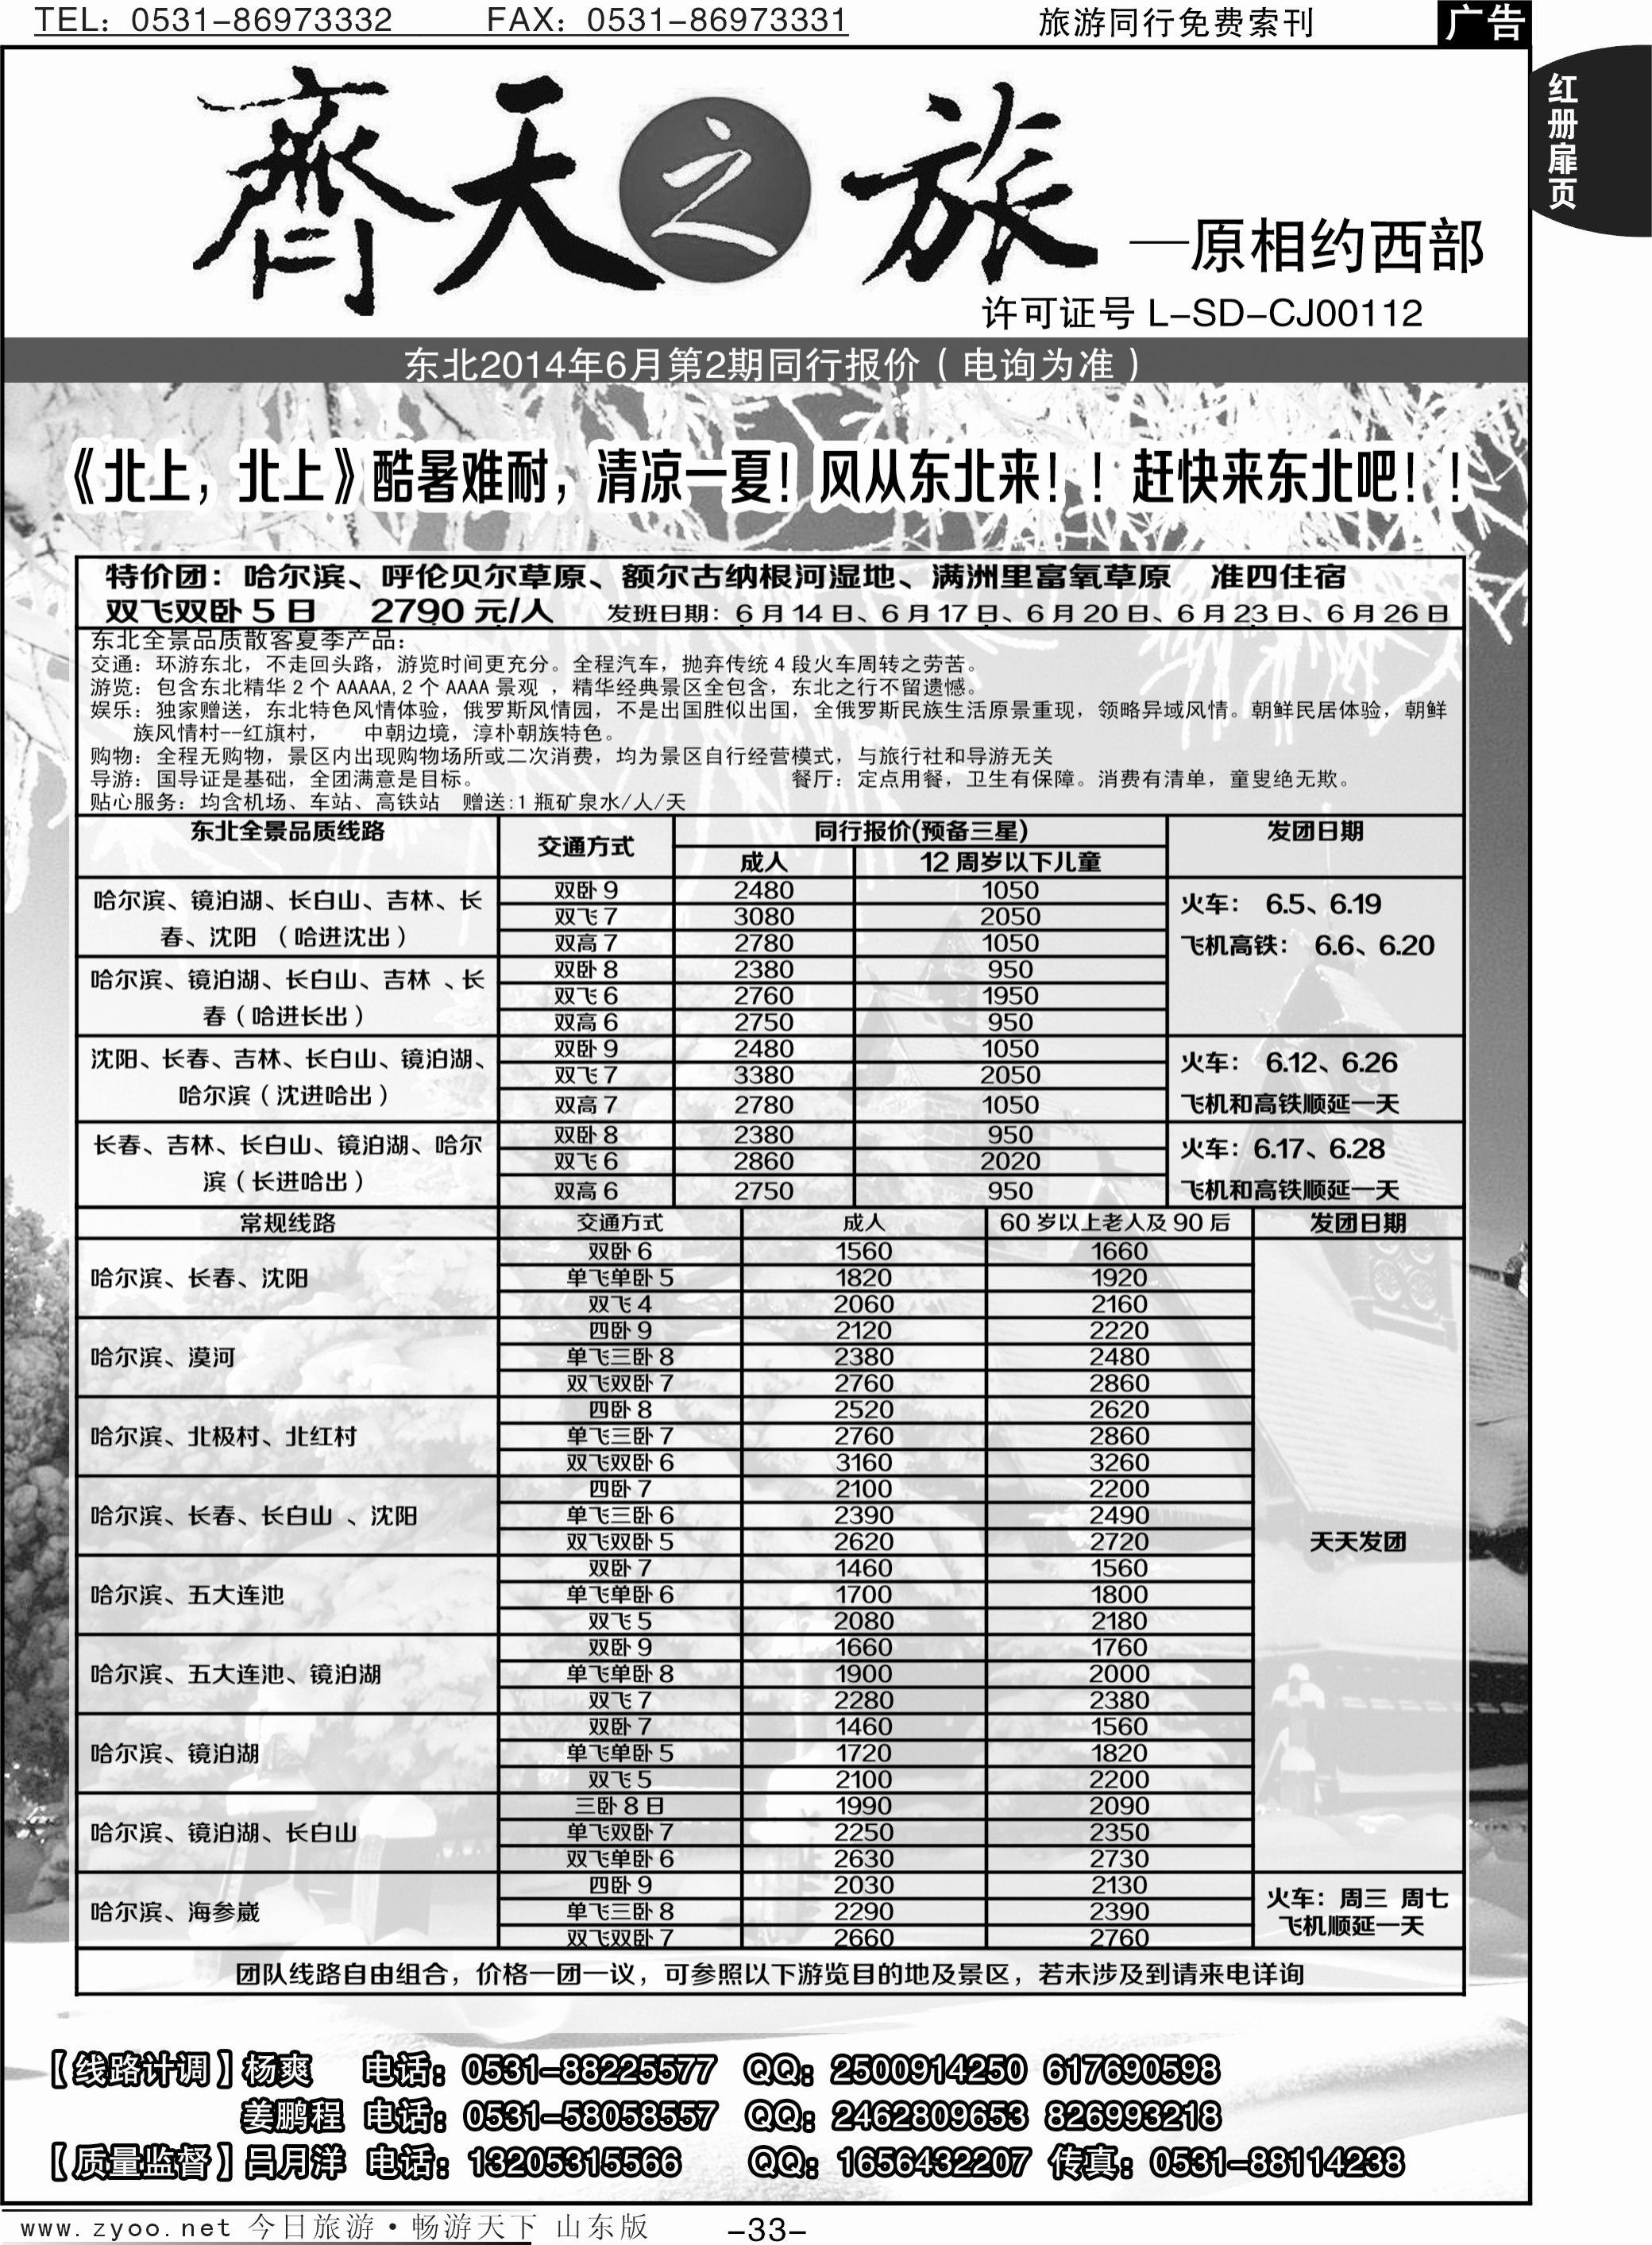 TEL：0531-86973332 FAX：0531-86973331 旅游同行免费索刊 广告
红册扉页
齊天之旅 —原相约西部
许可证号 L-SD-CJ00112
东北2014年6月第2期同行报价（电询为准）
《北上，北上》酷暑难耐，清凉一夏！风从东北来！！赶快来东北吧！！
特价团：哈尔滨、呼伦贝尔草原、额尔古纳根河湿地、满洲里富氧草原 准四住宿
双飞双卧 5 日 2790 元/人 发班日期：6 月 14 日、6 月 17 日、6 月 20 日、6 月 23 日、6 月 26 日
东北全景品质散客夏季产品：
交通：环游东北，不走回头路，游览时间更充分。全程汽车，抛弃传统 4 段火车周转之劳苦。
游览：包含东北精华 2 个 AAAAA, 2 个 AAAA 景观 ，精华经典景区全包含，东北之行不留遗憾。
娱乐：独家赠送，东北特色风情体验，俄罗斯风情园，不是出国胜似出国，全俄罗斯民族生活原景重现，领略异域风情。朝鲜民居体验，朝鲜
族风情村--红旗村， 中朝边境，淳朴朝族特色。
购物：全程无购物，景区内出现购物场所或二次消费，均为景区自行经营模式，与旅行社和导游无关
导游：国导证是基础，全团满意是目标。 餐厅：定点用餐，卫生有保障。消费有清单，童叟绝无欺。
贴心服务：均含机场、车站、高铁站 赠送:1 瓶矿泉水/人/天
东北全景品质线路 交通方式 同行报价(预备三星) 发团日期
成人 12 周岁以下儿童
哈尔滨、镜泊湖、长白山、吉林、长
春、沈阳 （哈进沈出）
双卧 9 2480 1050
双飞 7 3080 2050
双高 7 2780 1050
火车： 6.5、6.19
飞机高铁： 6.6、6.20
哈尔滨、镜泊湖、长白山、吉林 、长
春（哈进长出）
双卧 8 2380 950
双飞 6 2760 1950
双高 6 2750 950
沈阳、长春、吉林、长白山、镜泊湖、
哈尔滨（沈进哈出）
双卧 9 2480 1050
双飞 7 3380 2050
双高 7 2780 1050
火车： 6.12、6.26
飞机和高铁顺延一天
长春、吉林、长白山、镜泊湖、哈尔
滨（长进哈出）
双卧 8 2380 950
双飞 6 2860 2020
双高 6 2750 950
火车：6.17、6.28
飞机和高铁顺延一天
常规线路 交通方式 成人 60 岁以上老人及 90 后 发团日期
哈尔滨、长春、沈阳
双卧 6 1560 1660
单飞单卧 5 1820 1920
双飞 4 2060 2160
哈尔滨、漠河
四卧 9 2120 2220
单飞三卧 8 2380 2480
双飞双卧 7 2760 2860
哈尔滨、北极村、北红村
四卧 8 2520 2620
单飞三卧 7 2760 2860
双飞双卧 6 3160 3260
哈尔滨、长春、长白山 、沈阳
四卧 7 2100 2200
单飞三卧 6 2390 2490
双飞双卧 5 2620 2720
天天发团
哈尔滨、五大连池
双卧 7 1460 1560
单飞单卧 6 1700 1800
双飞 5 2080 2180
哈尔滨、五大连池、镜泊湖
双卧 9 1660 1760
单飞单卧 8 1900 2000
双飞 7 2280 2380
哈尔滨、镜泊湖
双卧 7 1460 1560
单飞单卧 5 1720 1820
双飞 5 2100 2200
哈尔滨、镜泊湖、长白山
三卧 8 日 1990 2090
单飞双卧 7 2250 2350
双飞单卧 6 2630 2730
哈尔滨、海参崴
四卧 9 2030 2130
单飞三卧 8 2290 2390
双飞双卧 7 2660 2760
火车：周三 周七
飞机顺延一天
团队线路自由组合，价格一团一议，可参照以下游览目的地及景区，若未涉及到请来电详询
【线路计调】杨爽 电话：0531-88225577 QQ：2500914250 617690598
姜鹏程 电话：0531-58058557 QQ：2462809653 826993218
【质量监督】吕月洋 电话：13205315566 QQ：1656432207 传真：0531-88114238
www.zyoo.net 今日旅游·畅游天下 山东版 -33-